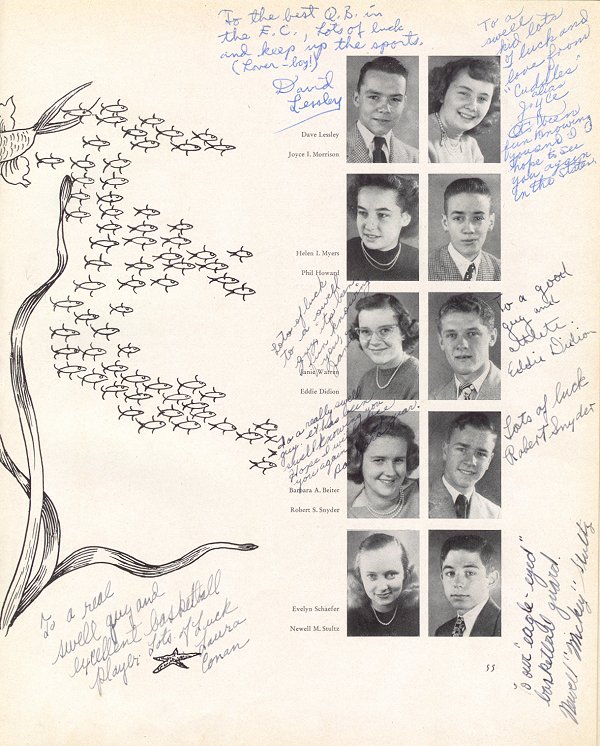 To the best Q.B. in
the E.C., Lots of luck
and keep up the sports.
(Lover-boy!)
David
Lessley
To a
swell
kid lots
of luck and
love from
"Cuddles"
alias
Joyce
It's been
fun knowing
you and I
hope to see
you again
in the States.
Dave Lessley
Joyce I. Morrison
Helen I. Myers
Phil Howard
Lots of luck
to a swell
guy
fun knowing
you
Janie Warren
Eddie Didion
To a good
guy and
athlete.
Eddie Didion
To a really swell
guy. It has been
swell knowing you
Hope I will see
you again next year.
Barbara A. Beiter
Robert S. Snyder
Lots of luck
Robert Snyder
Evelyn Schaefer
Newell M. Stultz
To our "eagle-eyed"
basketball guard.
Newell "Mickey" Stultz
To a real
swell guy and
excellent basketball
player. Lots of Luck
Laura
Conan
55